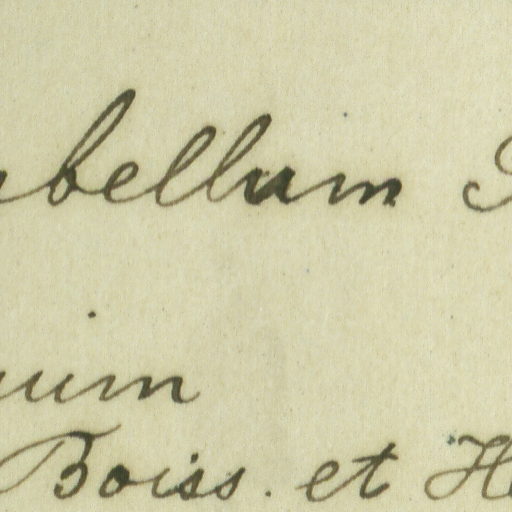 abellum
uum
Boiss. et H